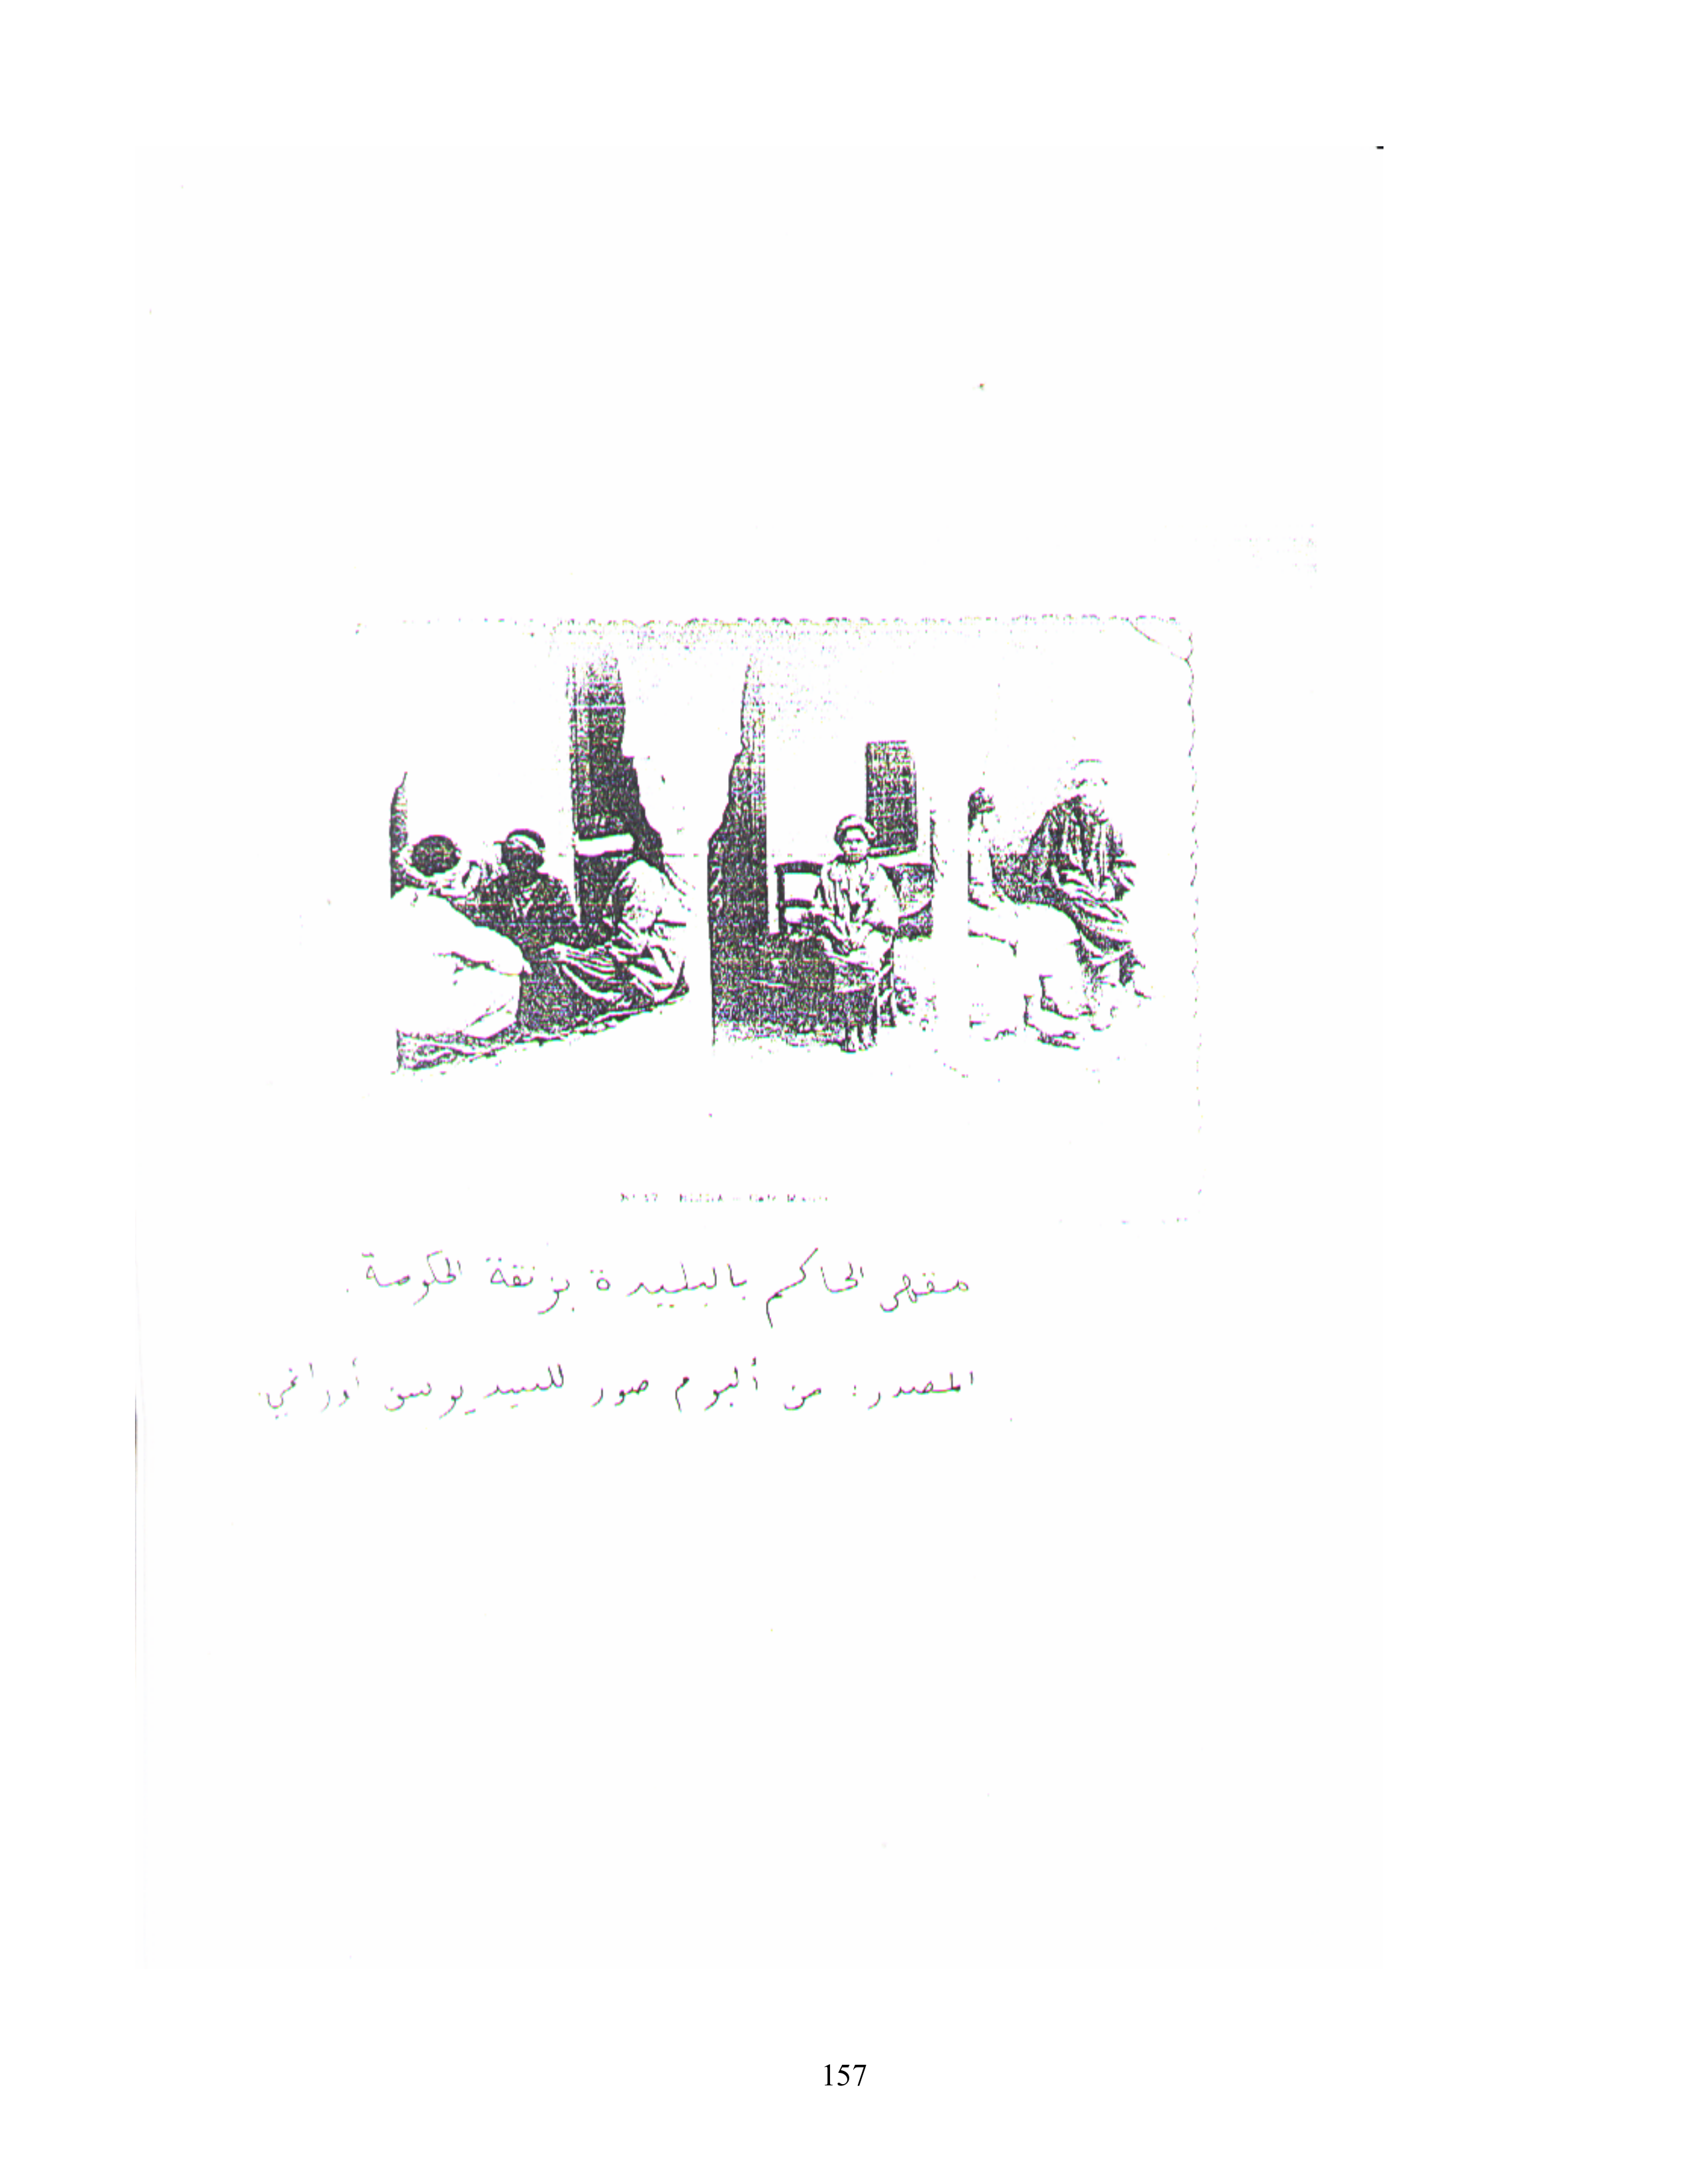 مقهى الحاكم بالبليدة بزنقة الحكومة.
المصدر: من ألبوم صور للسيد يوسف أوراغي
157